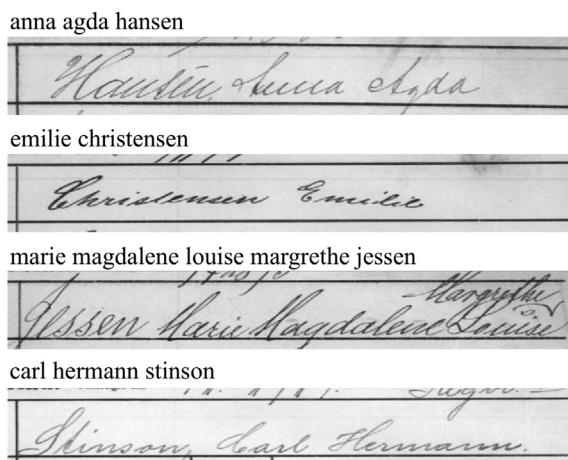 anna agda hansen
Hansen, Anna Agda
emilie christensen
Christensen Emilie
marie magdalene louise margrethe jessen
Margrethe
Jessen Marie Magdalene Louise
carl hermann stinson
Stinson, Carl Hermann.